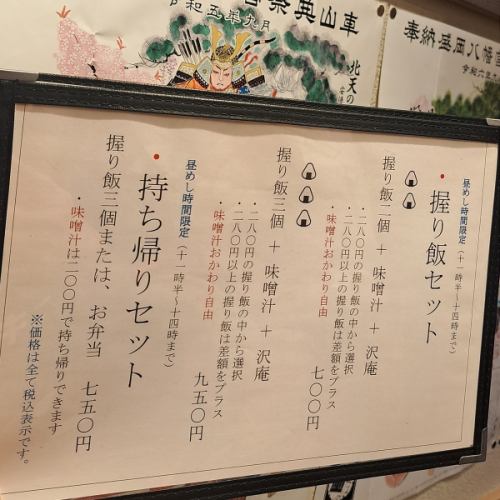 奉納盛岡八幡宮
令和六年
山車
令和五年九月
北天の
昼めし時間限定(十一時半～十四時まで)
・握り飯セット
握り飯二個 + 味噌汁 + 沢庵
・二八〇円の握り飯の中から選択
・二八〇円以上の握り飯は差額をプラス
・味噌汁おかわり自由
七〇〇円
握り飯三個 + 味噌汁 + 沢庵
・二八〇円の握り飯の中から選択
・二八〇円以上の握り飯は差額をプラス
・味噌汁おかわり自由
九五〇円
昼めし時間限定(十一時半～十四時まで)
・持ち帰りセット
握り飯三個または、お弁当 七五〇円
・味噌汁は二〇〇円で持ち帰りできます
※価格は全て税込表示です。